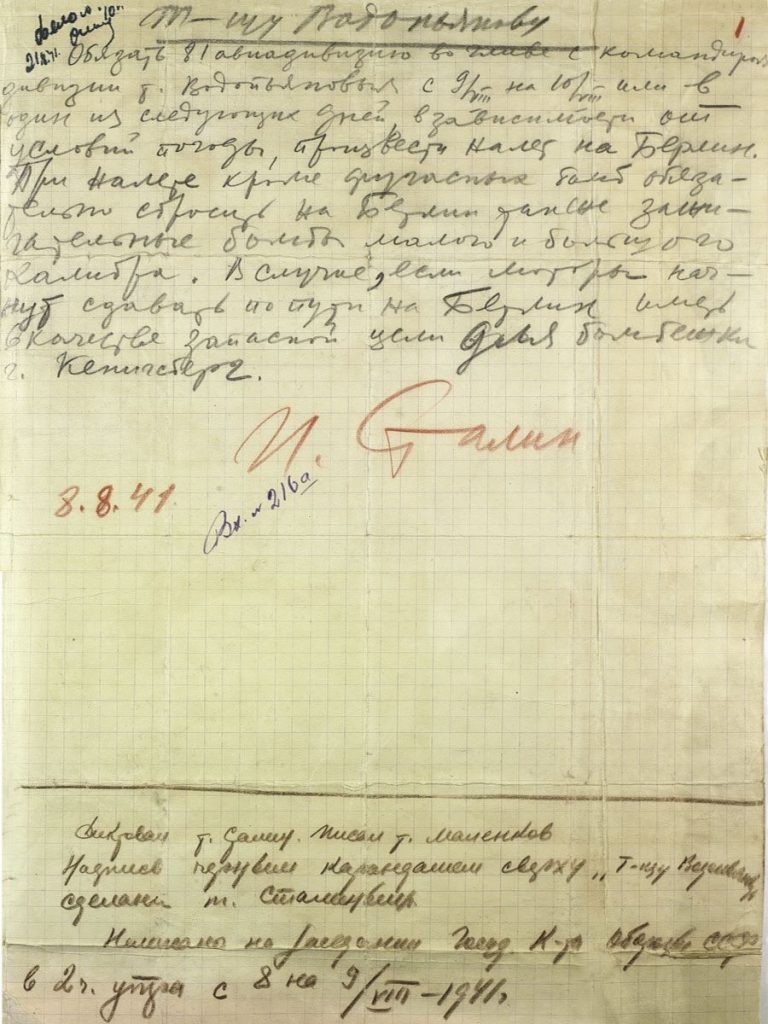 Т-щу Водопьянову
1
21.8.41.
Обязать 81 авиадивизию во главе с командиром
дивизии т. Водопьяновым с 9/VIII на 10/VIII или в
один из следующих дней, в зависимости от
условий погоды, произвести налет на Берлин.
При налете кроме фугасных бомб обяза-
тельно сбросить на Берлин также зажи-
гательные бомбы малого и большого
калибра. В случае, если моторы нач-
нут сдавать по пути на Берлин иметь
в качестве запасной цели для бомбежки
г. Кенигсберг.
И. Сталин
8.8.41
Вх. № 216а
Диктовал т. Сталин. Писал т. Маленков
Надпись черным карандашом сверху „Т-щу Водопьянову
сделана т. Сталиным
Написано на заседании Госуд. К-та Обороны СССР
в 2 ч. утра с 8 на 9/VIII – 1941 г.